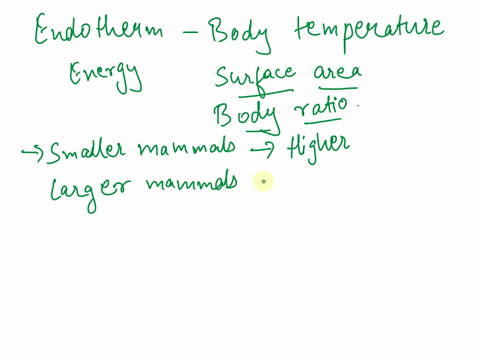 Endotherm - Body temperature
Energy Surface area
Body ratio.
→ Smaller mammals → Higher
Larger mammals